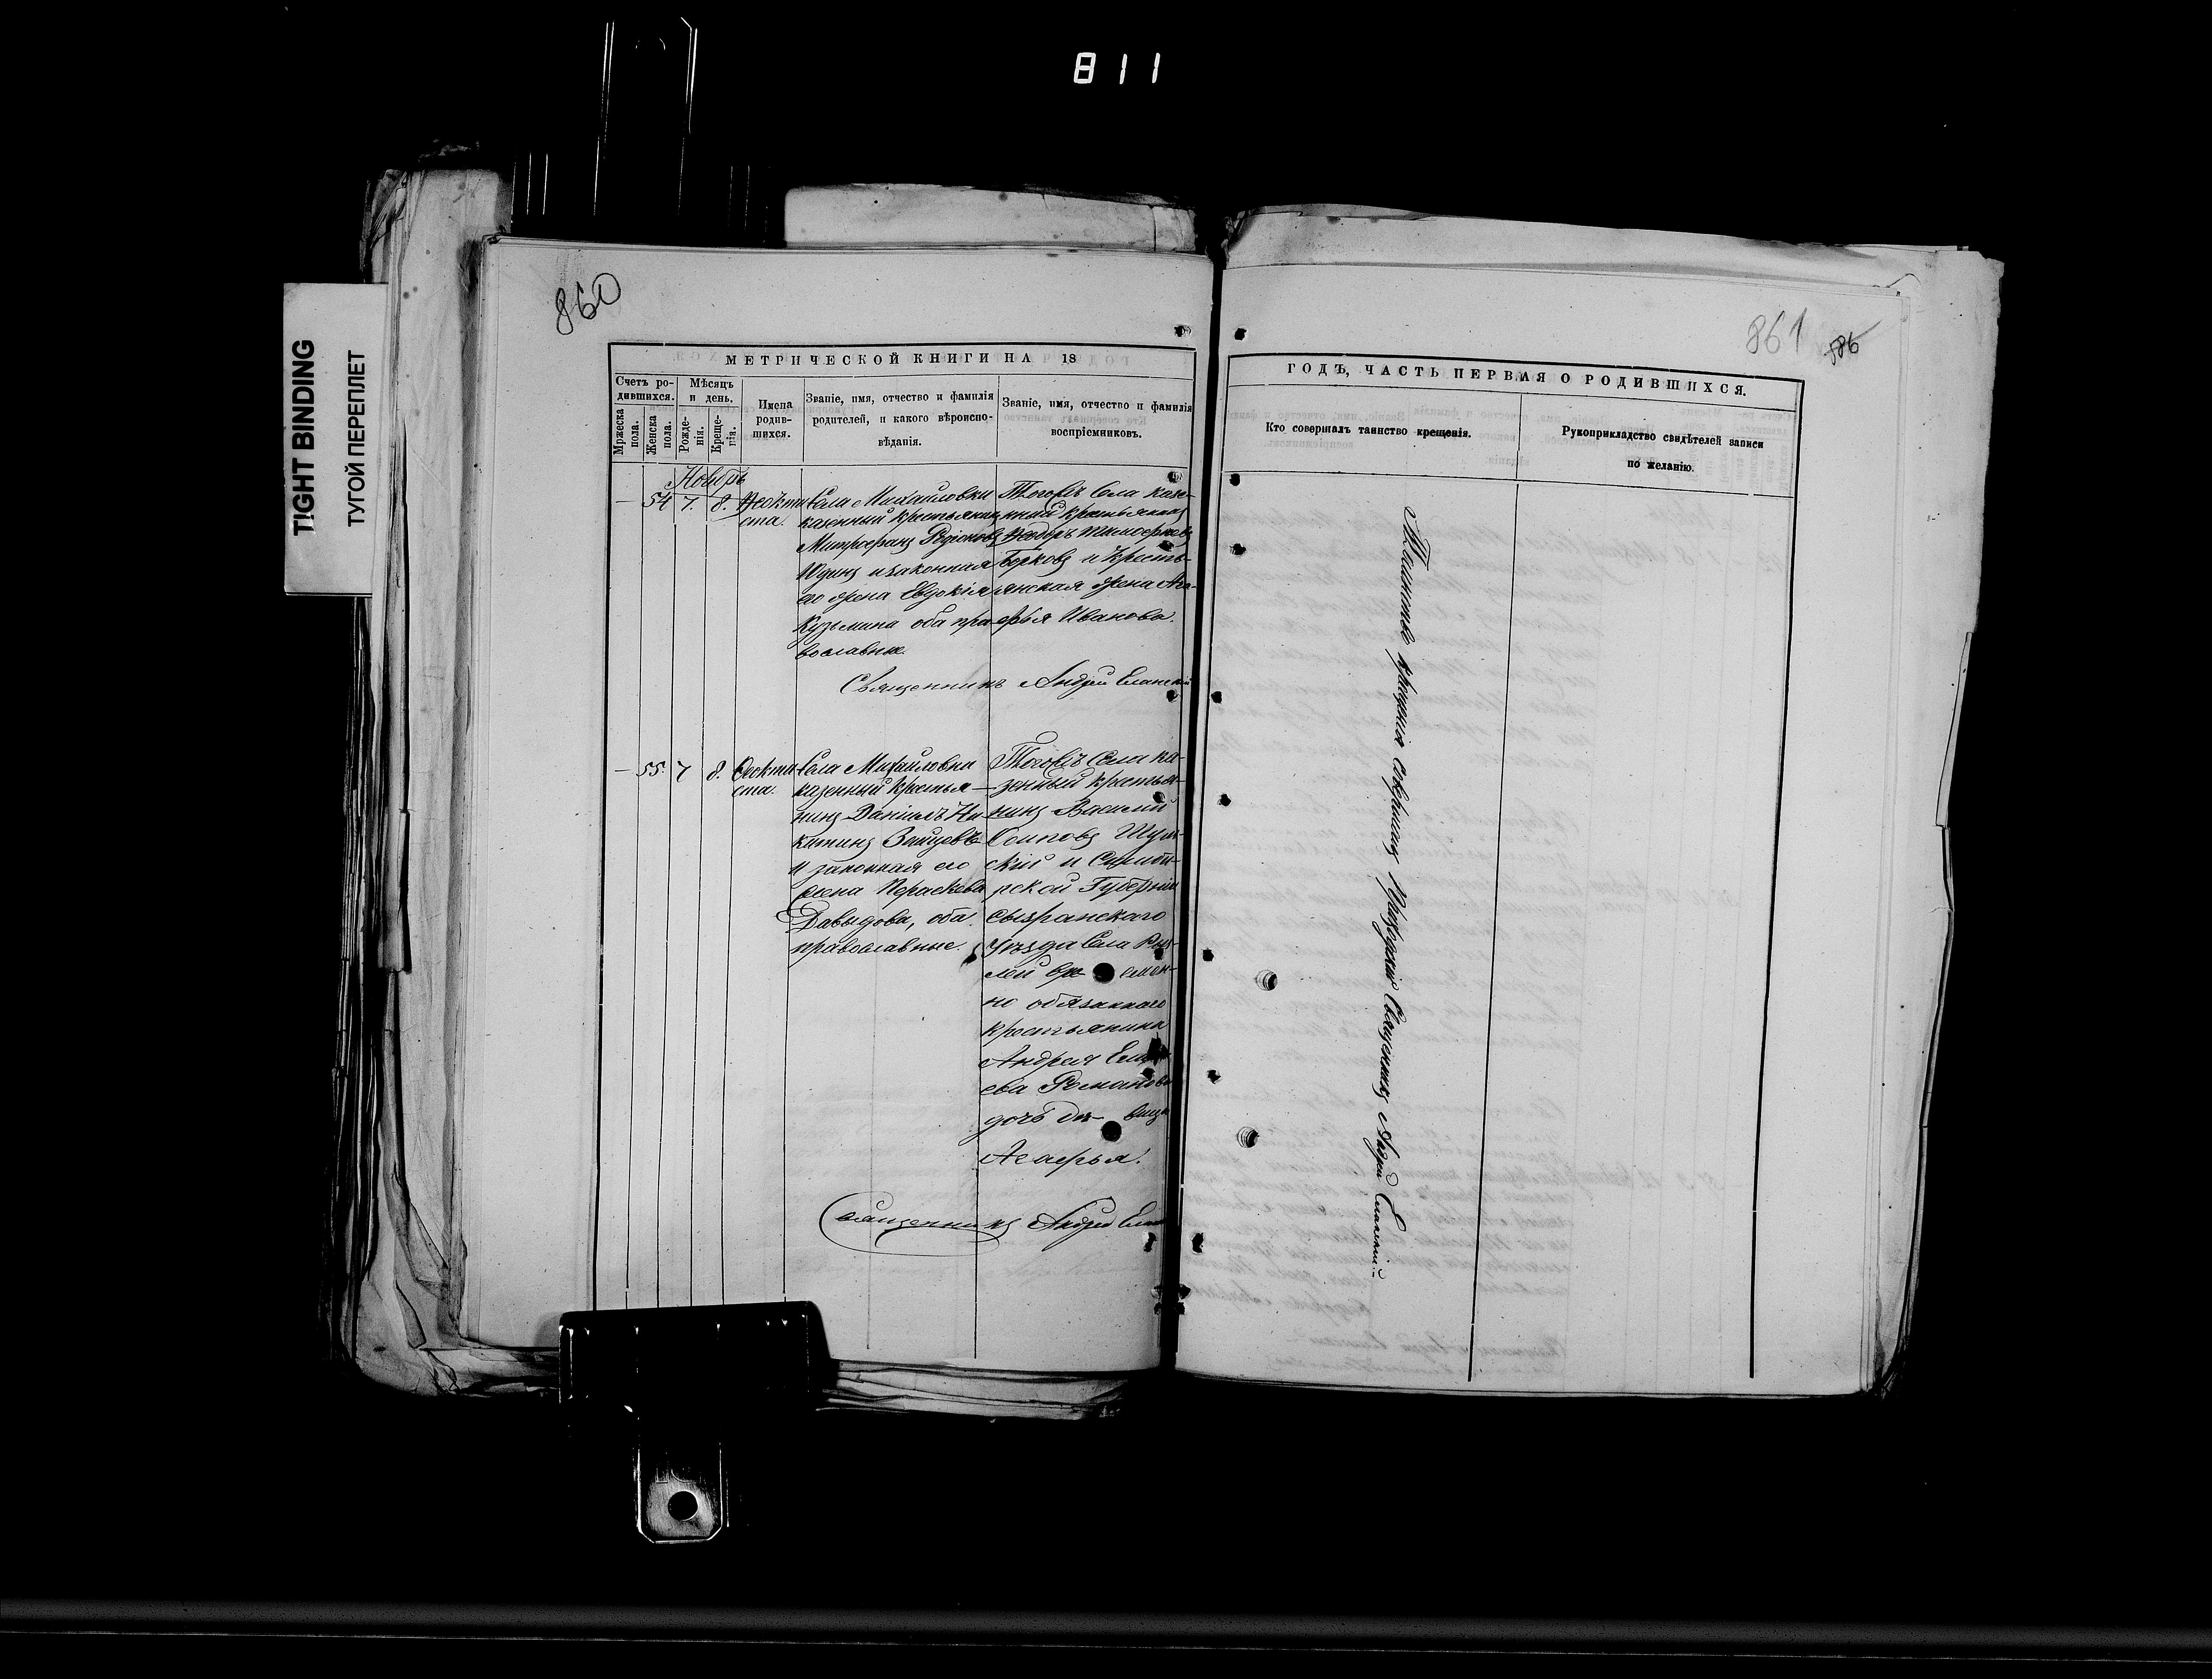 811
TIGHT BINDING
ТУГОЙ ПЕРЕПЛЕТ
860
МЕТРИЧЕСКОЙ КНИГИ НА 18
Счетъ ро-
дившихся.
Мѣсяцъ
и день.
Имена
родив-
шихся.
Званіе, имя, отчество и фамилія
родителей, и какого вѣроиспо-
вѣданія.
Званіе, имя, отчество и фамилія
воспріемниковъ.
Мржеска
пола.
Женска
пола.
Рожде-
нія.
Креще-
нія.
Ноябрь
— 54 7. 8. Ѳеокти
ста.
Села Михаиловки
казенный крестьянинъ
Митрофанъ Родіоновъ
Юдинъ и законная
его жена Евдокія
Кузьмина оба пра-
вославные.
Тогожъ Села казе-
нный крестьянинъ
Ѳеодоръ Тимофеевъ
Горковъ и кресть-
янская жена Ага-
фья Иванова.
Священникъ Андрей Еланскій
— 55. 7 8. Ѳеокти
ста.
Села Михайловки
казенный крестья-
нинъ Даніилъ Ни-
китинъ Зайцевъ
и законная его
жена Параскева
Давыдова, оба
православные.
Тогожъ Села ка-
зенный крестья-
нинъ Василий
Осиповъ
и Симби-
рской Губерніи
Сызранскаго
Уѣзда Села
времен-
но обязаннаго
крестьянина
Андрея
Романова
дочь дѣвица
Агафья.
Священникъ Андрей
861
586
ГОДЪ, ЧАСТЬ ПЕРВАЯ О РОДИВШИХСЯ.
Кто совершалъ таинство крещенія.
Рукоприкладство свидѣтелей записи
по желанію.
Таинство крещенія совершалъ Приходскій Священникъ Андрей Еланскій